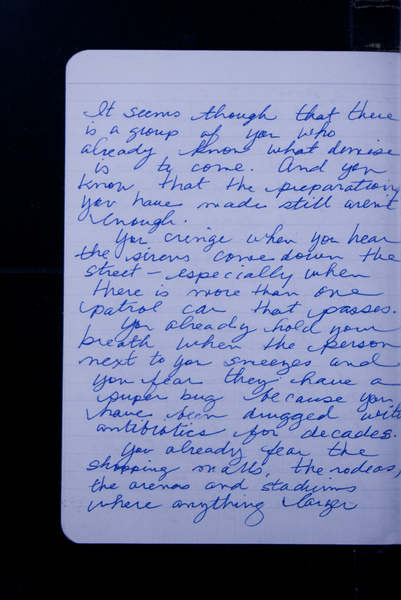 It seems though that there
is a group of you who
already know what demise
is to come. And you
know that the preparations
you have made still aren't
enough.
You cringe when you hear
the sirens come down the
street - especially when
there is more than one
patrol car that passes.
You already hold your
breath when the person
next to you sneezes and
you fear they have a
super bug because you
have been drugged with
antibiotics for decades.
You already fear the
shopping malls, the rodeos,
the arenas and stadiums
where anything larger